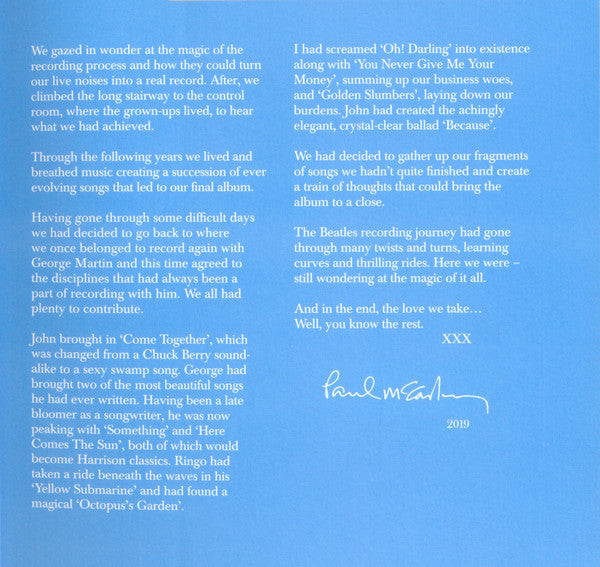 We gazed in wonder at the magic of the
recording process and how they could turn
our live noises into a real record. After, we
climbed the long stairway to the control
room, where the grown-ups lived, to hear
what we had achieved.
Through the following years we lived and
breathed music creating a succession of ever
evolving songs that led to our final album.
Having gone through some difficult days
we had decided to go back to where
we once belonged to record again with
George Martin and this time agreed to
the disciplines that had always been a
part of recording with him. We all had
plenty to contribute.
John brought in ‘Come Together’, which
was changed from a Chuck Berry sound-
alike to a sexy swamp song. George had
brought two of the most beautiful songs
he had ever written. Having been a late
bloomer as a songwriter, he was now
peaking with ‘Something’ and ‘Here
Comes The Sun’, both of which would
become Harrison classics. Ringo had
taken a ride beneath the waves in his
‘Yellow Submarine’ and had found a
magical ‘Octopus’s Garden’.
I had screamed ‘Oh! Darling’ into existence
along with ‘You Never Give Me Your
Money’, summing up our business woes,
and ‘Golden Slumbers’, laying down our
burdens. John had created the achingly
elegant, crystal-clear ballad ‘Because’.
We had decided to gather up our fragments
of songs we hadn’t quite finished and create
a train of thoughts that could bring the
album to a close.
The Beatles recording journey had gone
through many twists and turns, learning
curves and thrilling rides. Here we were –
still wondering at the magic of it all.
And in the end, the love we take…
Well, you know the rest.
XXX
Paul McCartney
2019